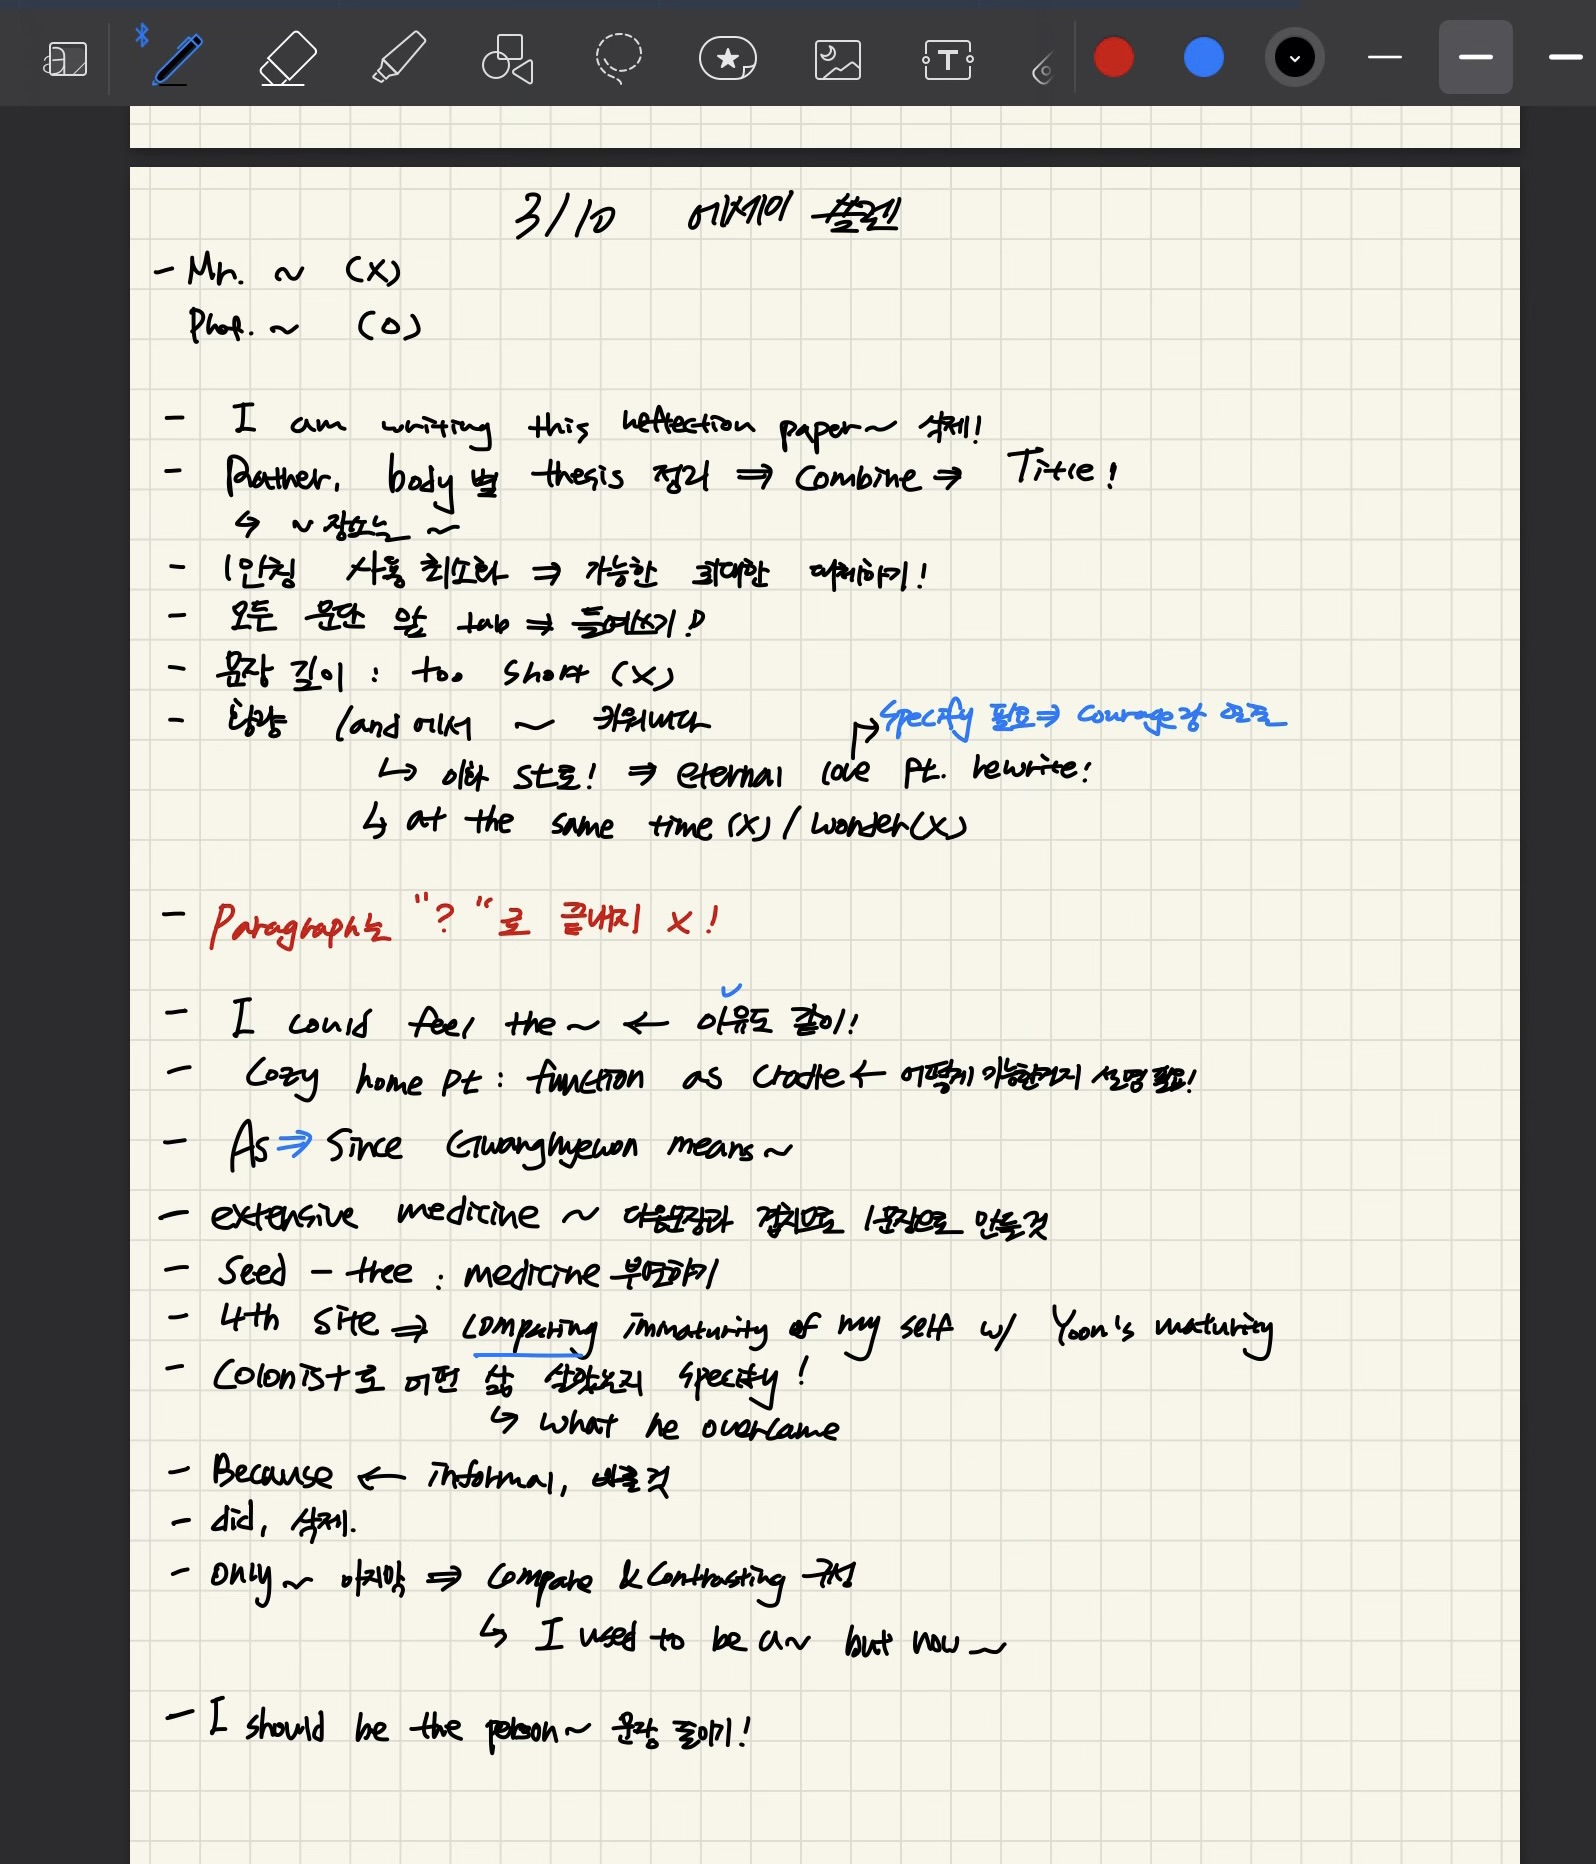 3/10 에세이
- Mr. ~ (X)
Prof. ~ (O)
- I am writing this reflection paper~ 삭제!
- Rather, body별 thesis 정리 ⇒ Combine ⇒ Title!
↳ ~장소는 ~
- 1인칭 사용 최소화 ⇒ 가능한 최대한 대체하기!
- 모두 문단 앞 tab ⇒ 들여쓰기!
- 문장 길이 : too short (X)
- land에서 ~ 키워내다
Specify 필요⇒ Courage랑 연준
↳ 이화 st로! ⇒ eternal love pt. rewrite!
↳ at the same time (X) / wonder(X)
- Paragraph는 "?"로 끝내지 X!
- I could feel the ~ ← 이유도 같이!
- Cozy home pt : function as cradle ← 어떻게 가능한건지 설명 필요!
- As ⇒ Since Gwanghyewon means ~
- extensive medicine ~ 다음문장과 겹치므로 1문장으로 만들 것
- Seed - tree : medicine 부연하기
- 4th site ⇒ comparing immaturity of my self w/ Yoon's maturity
- Colonist로 어떤 삶 살았는지 specify!
↳ what he overcame
- Because ← informal, 바꿀 것
- did, 삭제.
- only ~ 마지막 ⇒ Compare & Contrasting 구성
↳ I used to be a~ but now ~
- I should be the person~ 문장 줄이기!